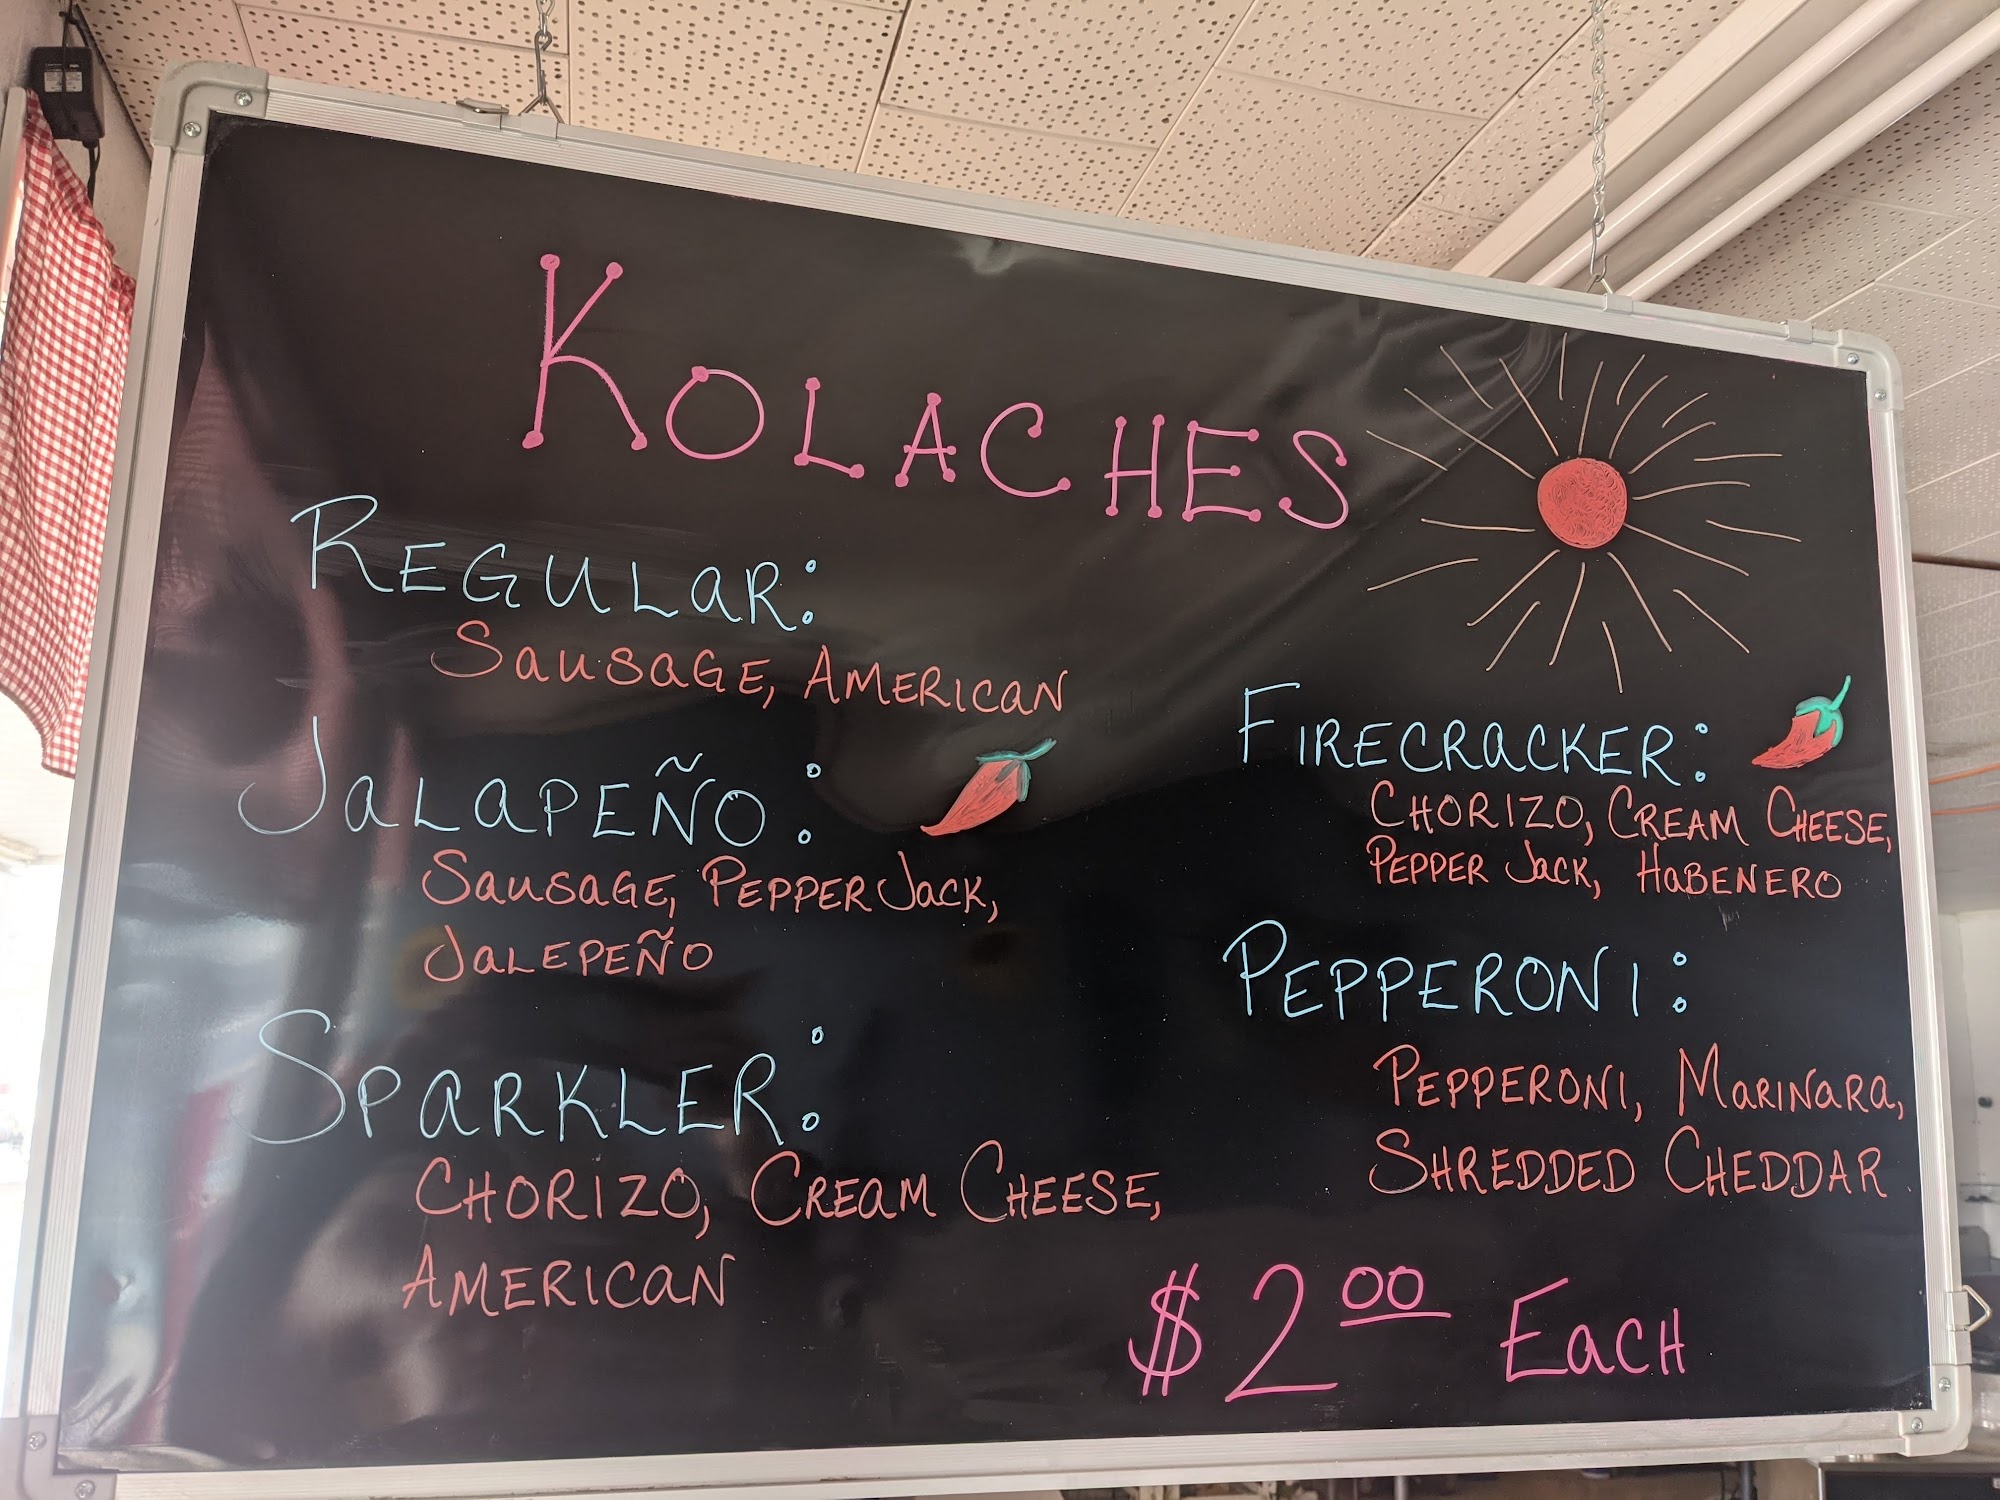 KOLACHES
REGULAR:
SAUSAGE, AMERICAN
JALAPEÑO:
SAUSAGE, PEPPER JACK,
JALEPEÑO
SPARKLER:
CHORIZO, CREAM CHEESE,
AMERICAN
FIRECRACKER:
CHORIZO, CREAM CHEESE,
PEPPER JACK, HABENERO
PEPPERONI:
PEPPERONI, MARINARA,
SHREDDED CHEDDAR
$2.00 EACH